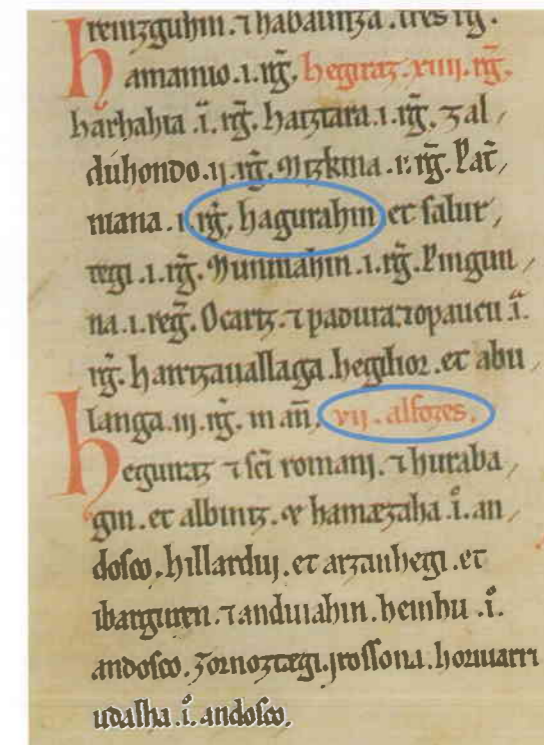 reinzguhin. ⁊ habaunza. tres rg̃.
hamamio .i. rg̃. hegiraz. xiiij. rg̃.
harhahia .i. rg̃. Harztara .i. rg̃. Zal
duhondo .ij. rg̃. Mizkina .i. rg̃. Pat̃
niana .i. rg̃. hagurahin et salur
tegi .i. rg̃. Munniahin .i. rg̃. Pingun
na .i. reg̃. Ocariz. ⁊ padura ⁊ opaucu .i.
rg̃. harrizauallaga. hegilior. et abu
langa .iij. rg̃. in añ. vij. alfozes.
hegiraz ⁊ sc̃i romani. ⁊ huraba
gin. et albiniz. & hamezaha .i. an
dosco. hillardui. et arzanhegi. et
ibarguren. ⁊ anduiahin. heinhu .i.
andosco. Zornoztegi. irossona. horiuarri
udalha .i. andosco.